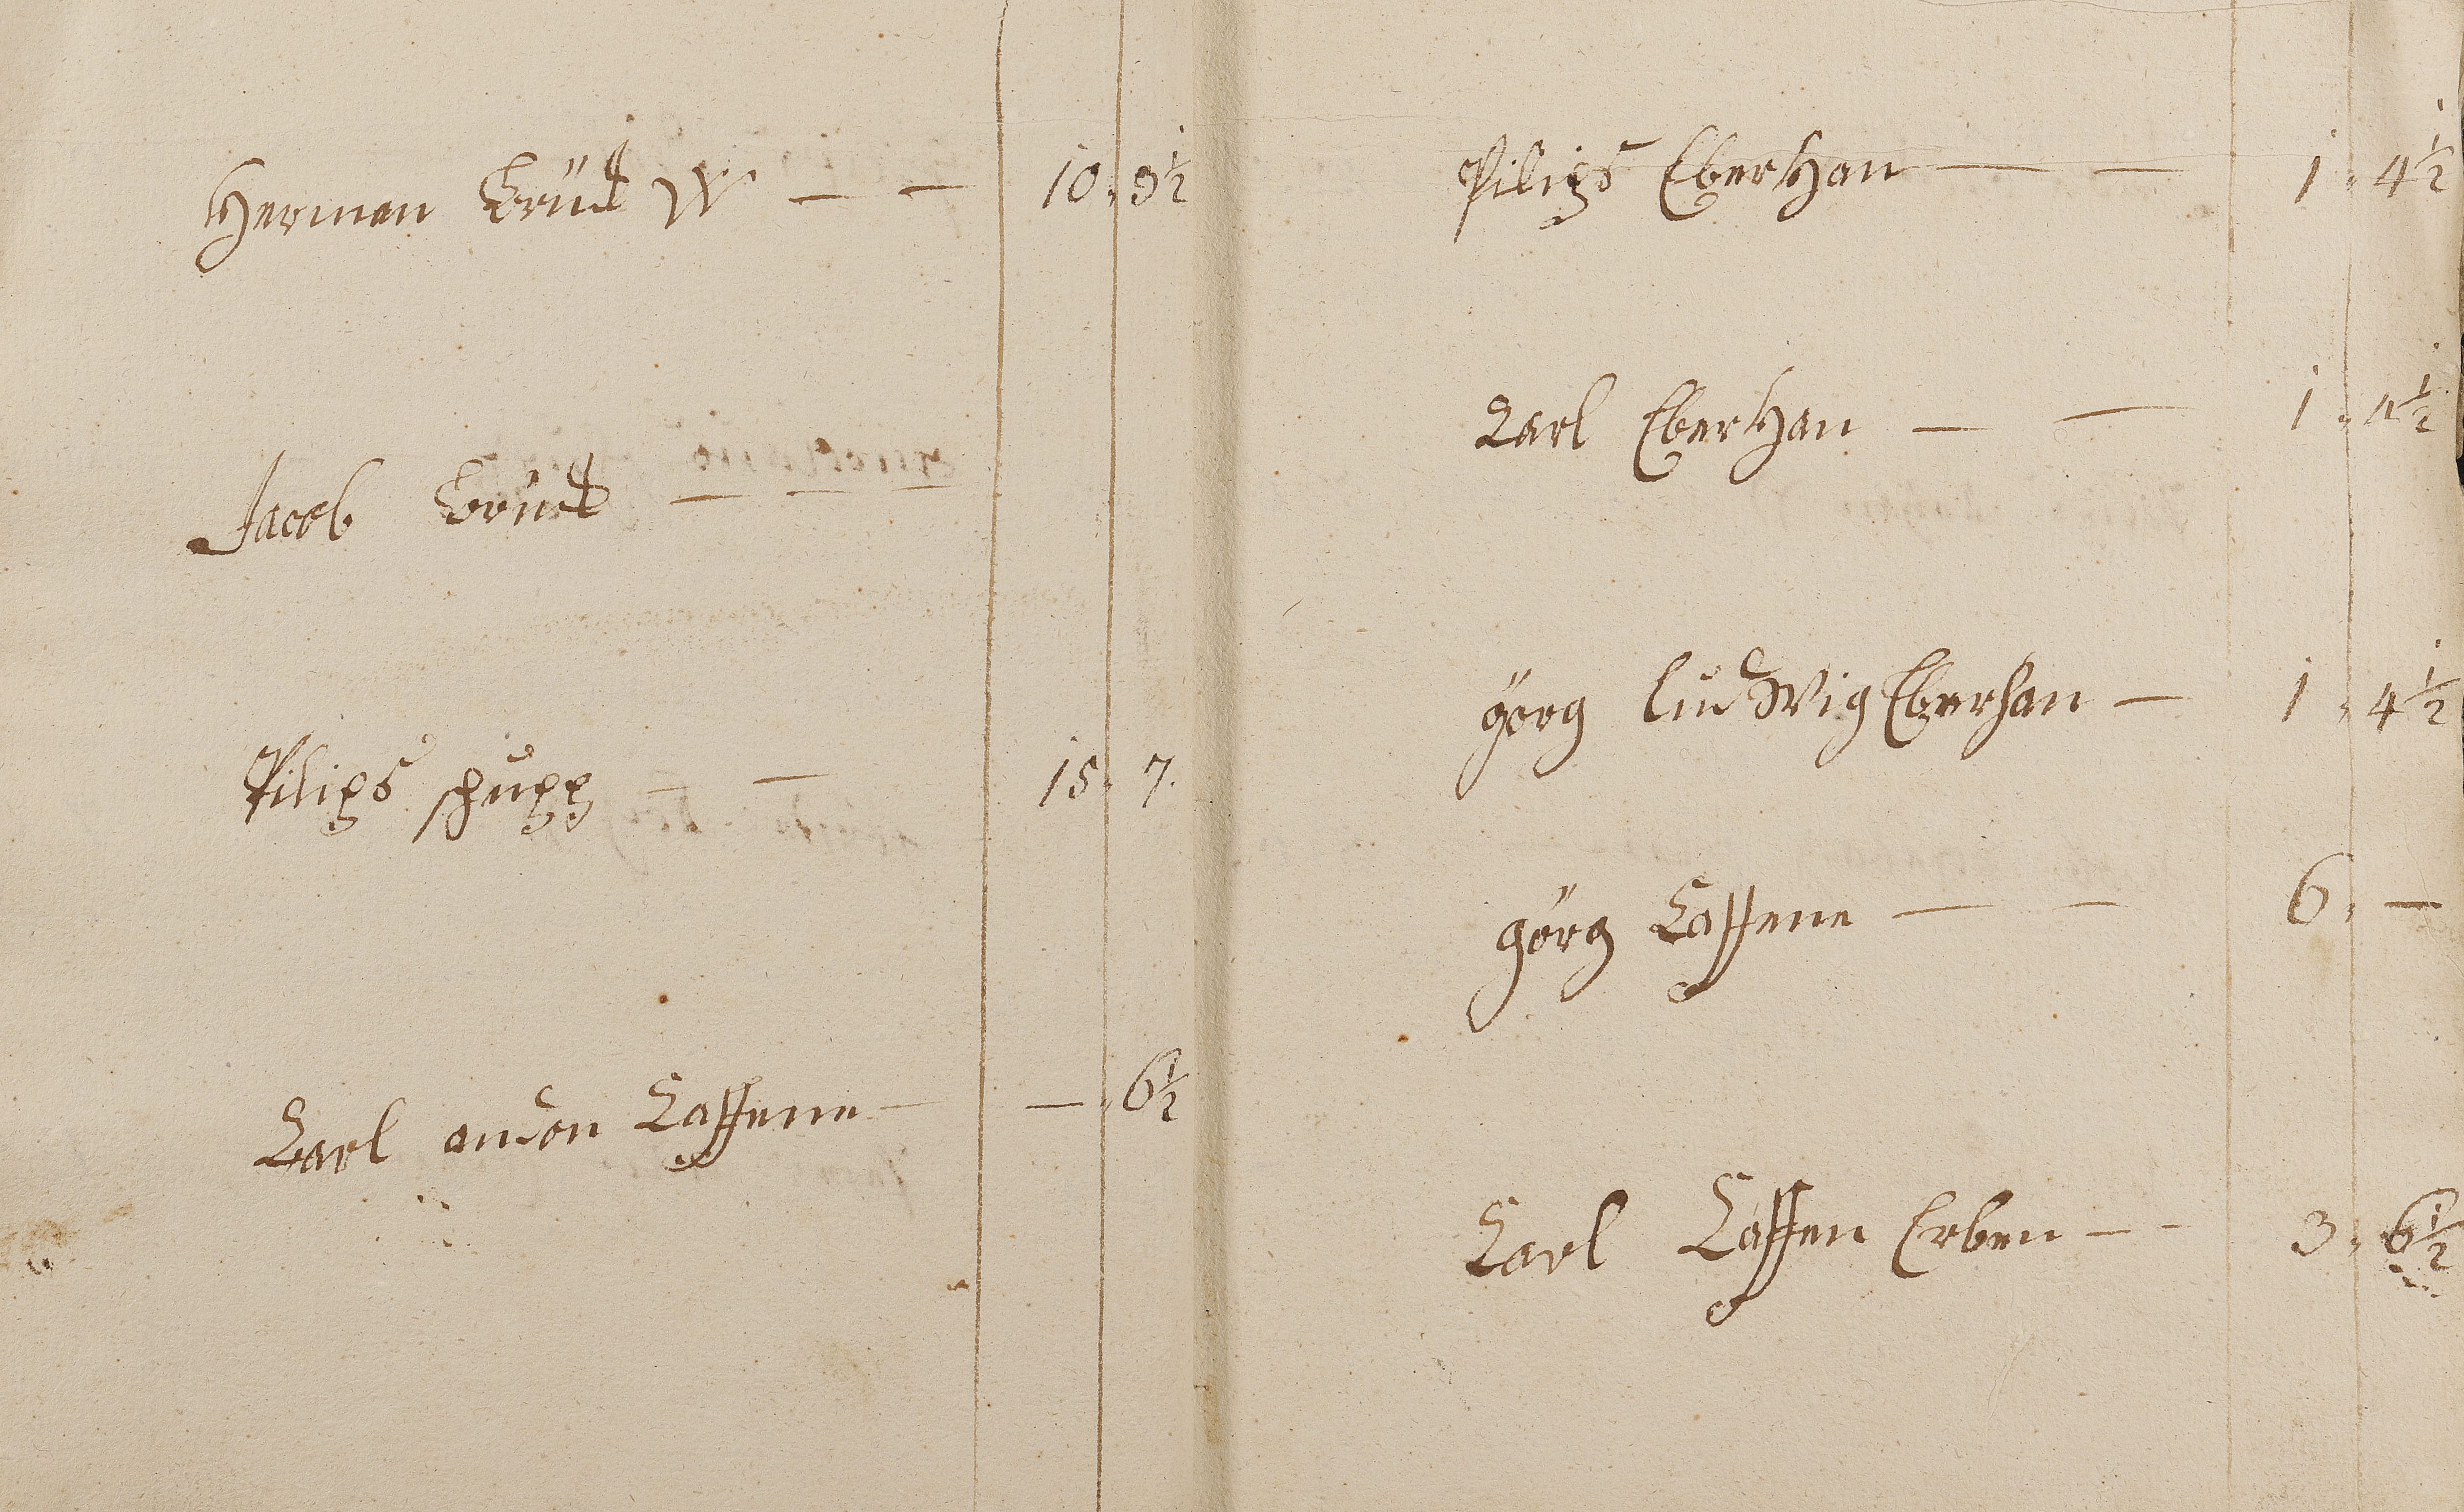 Herman Brüct W — — 10. 5½
Jacob Brüct — — —
Pilips schupp — — 15. 7.
Carl andon Caffene — — . 6½
Pilips Eberhan — — 1. 4½
Carl Eberhan — — 1. 4½
görg ludwig Eberhan — 1. 4½
görg Caffene — — 6. —
Carl Caffen Erben — - 3. 6½